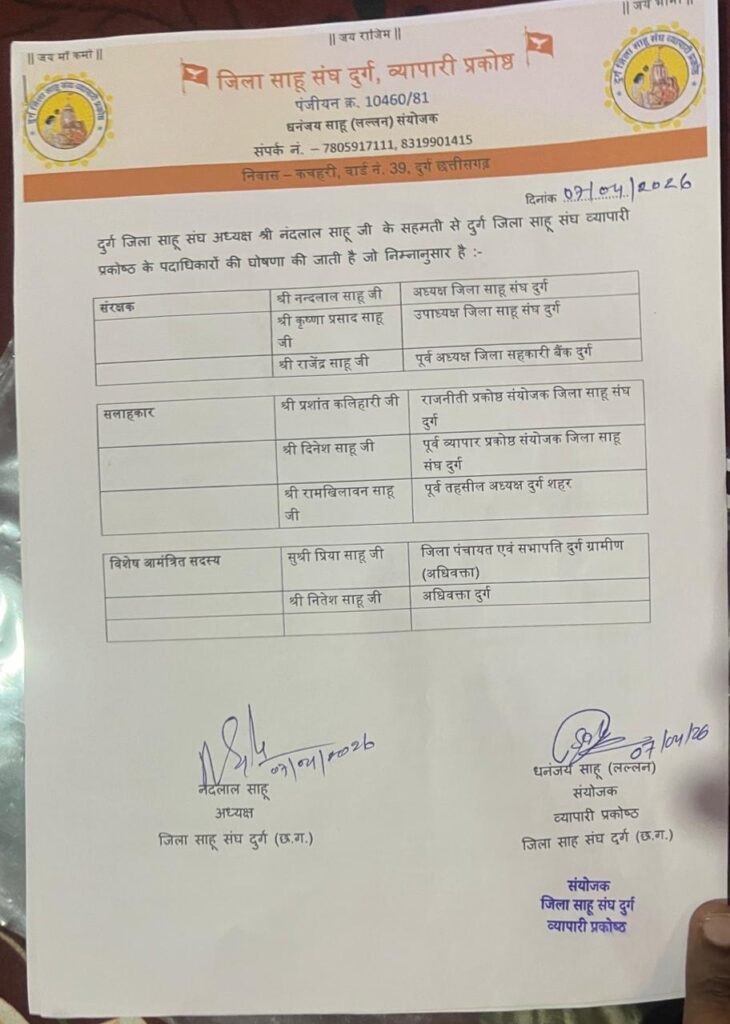 || जय माँ कर्मा ||
|| जय राजिम ||
जिला साहू संघ दुर्ग, व्यापारी प्रकोष्ठ
पंजीयन क्र. 10460/81
धनंजय साहू (लल्लन) संयोजक
संपर्क नं. – 7805917111, 8319901415
निवास – कचहरी, वार्ड नं. 39, दुर्ग छत्तीसगढ़
दिनांक 07/04/2026
दुर्ग जिला साहू संघ अध्यक्ष श्री नंदलाल साहू जी के सहमती से दुर्ग जिला साहू संघ व्यापारी
प्रकोष्ठ के पदाधिकारों की घोषणा की जाती है जो निम्नानुसार है :-
संरक्षक श्री नन्दलाल साहू जी अध्यक्ष जिला साहू संघ दुर्ग
श्री कृष्णा प्रसाद साहू उपाध्यक्ष जिला साहू संघ दुर्ग
जी
श्री राजेंद्र साहू जी पूर्व अध्यक्ष जिला सहकारी बैंक दुर्ग
सलाहकार श्री प्रशांत कलिहारी जी राजनीती प्रकोष्ठ संयोजक जिला साहू संघ
दुर्ग
श्री दिनेश साहू जी पूर्व व्यापार प्रकोष्ठ संयोजक जिला साहू
संघ दुर्ग
श्री रामखिलावन साहू पूर्व तहसील अध्यक्ष दुर्ग शहर
जी
विशेष आमंत्रित सदस्य सुश्री प्रिया साहू जी जिला पंचायत एवं सभापति दुर्ग ग्रामीण
(अधिवक्ता)
श्री नितेश साहू जी अधिवक्ता दुर्ग
07/04/2026
07/04/26
नंदलाल साहू
अध्यक्ष
जिला साहू संघ दुर्ग (छ.ग.)
धनंजय साहू (लल्लन)
संयोजक
व्यापारी प्रकोष्ठ
जिला साह संघ दुर्ग (छ.ग.)
संयोजक
जिला साहू संघ दुर्ग
व्यापारी प्रकोष्ठ